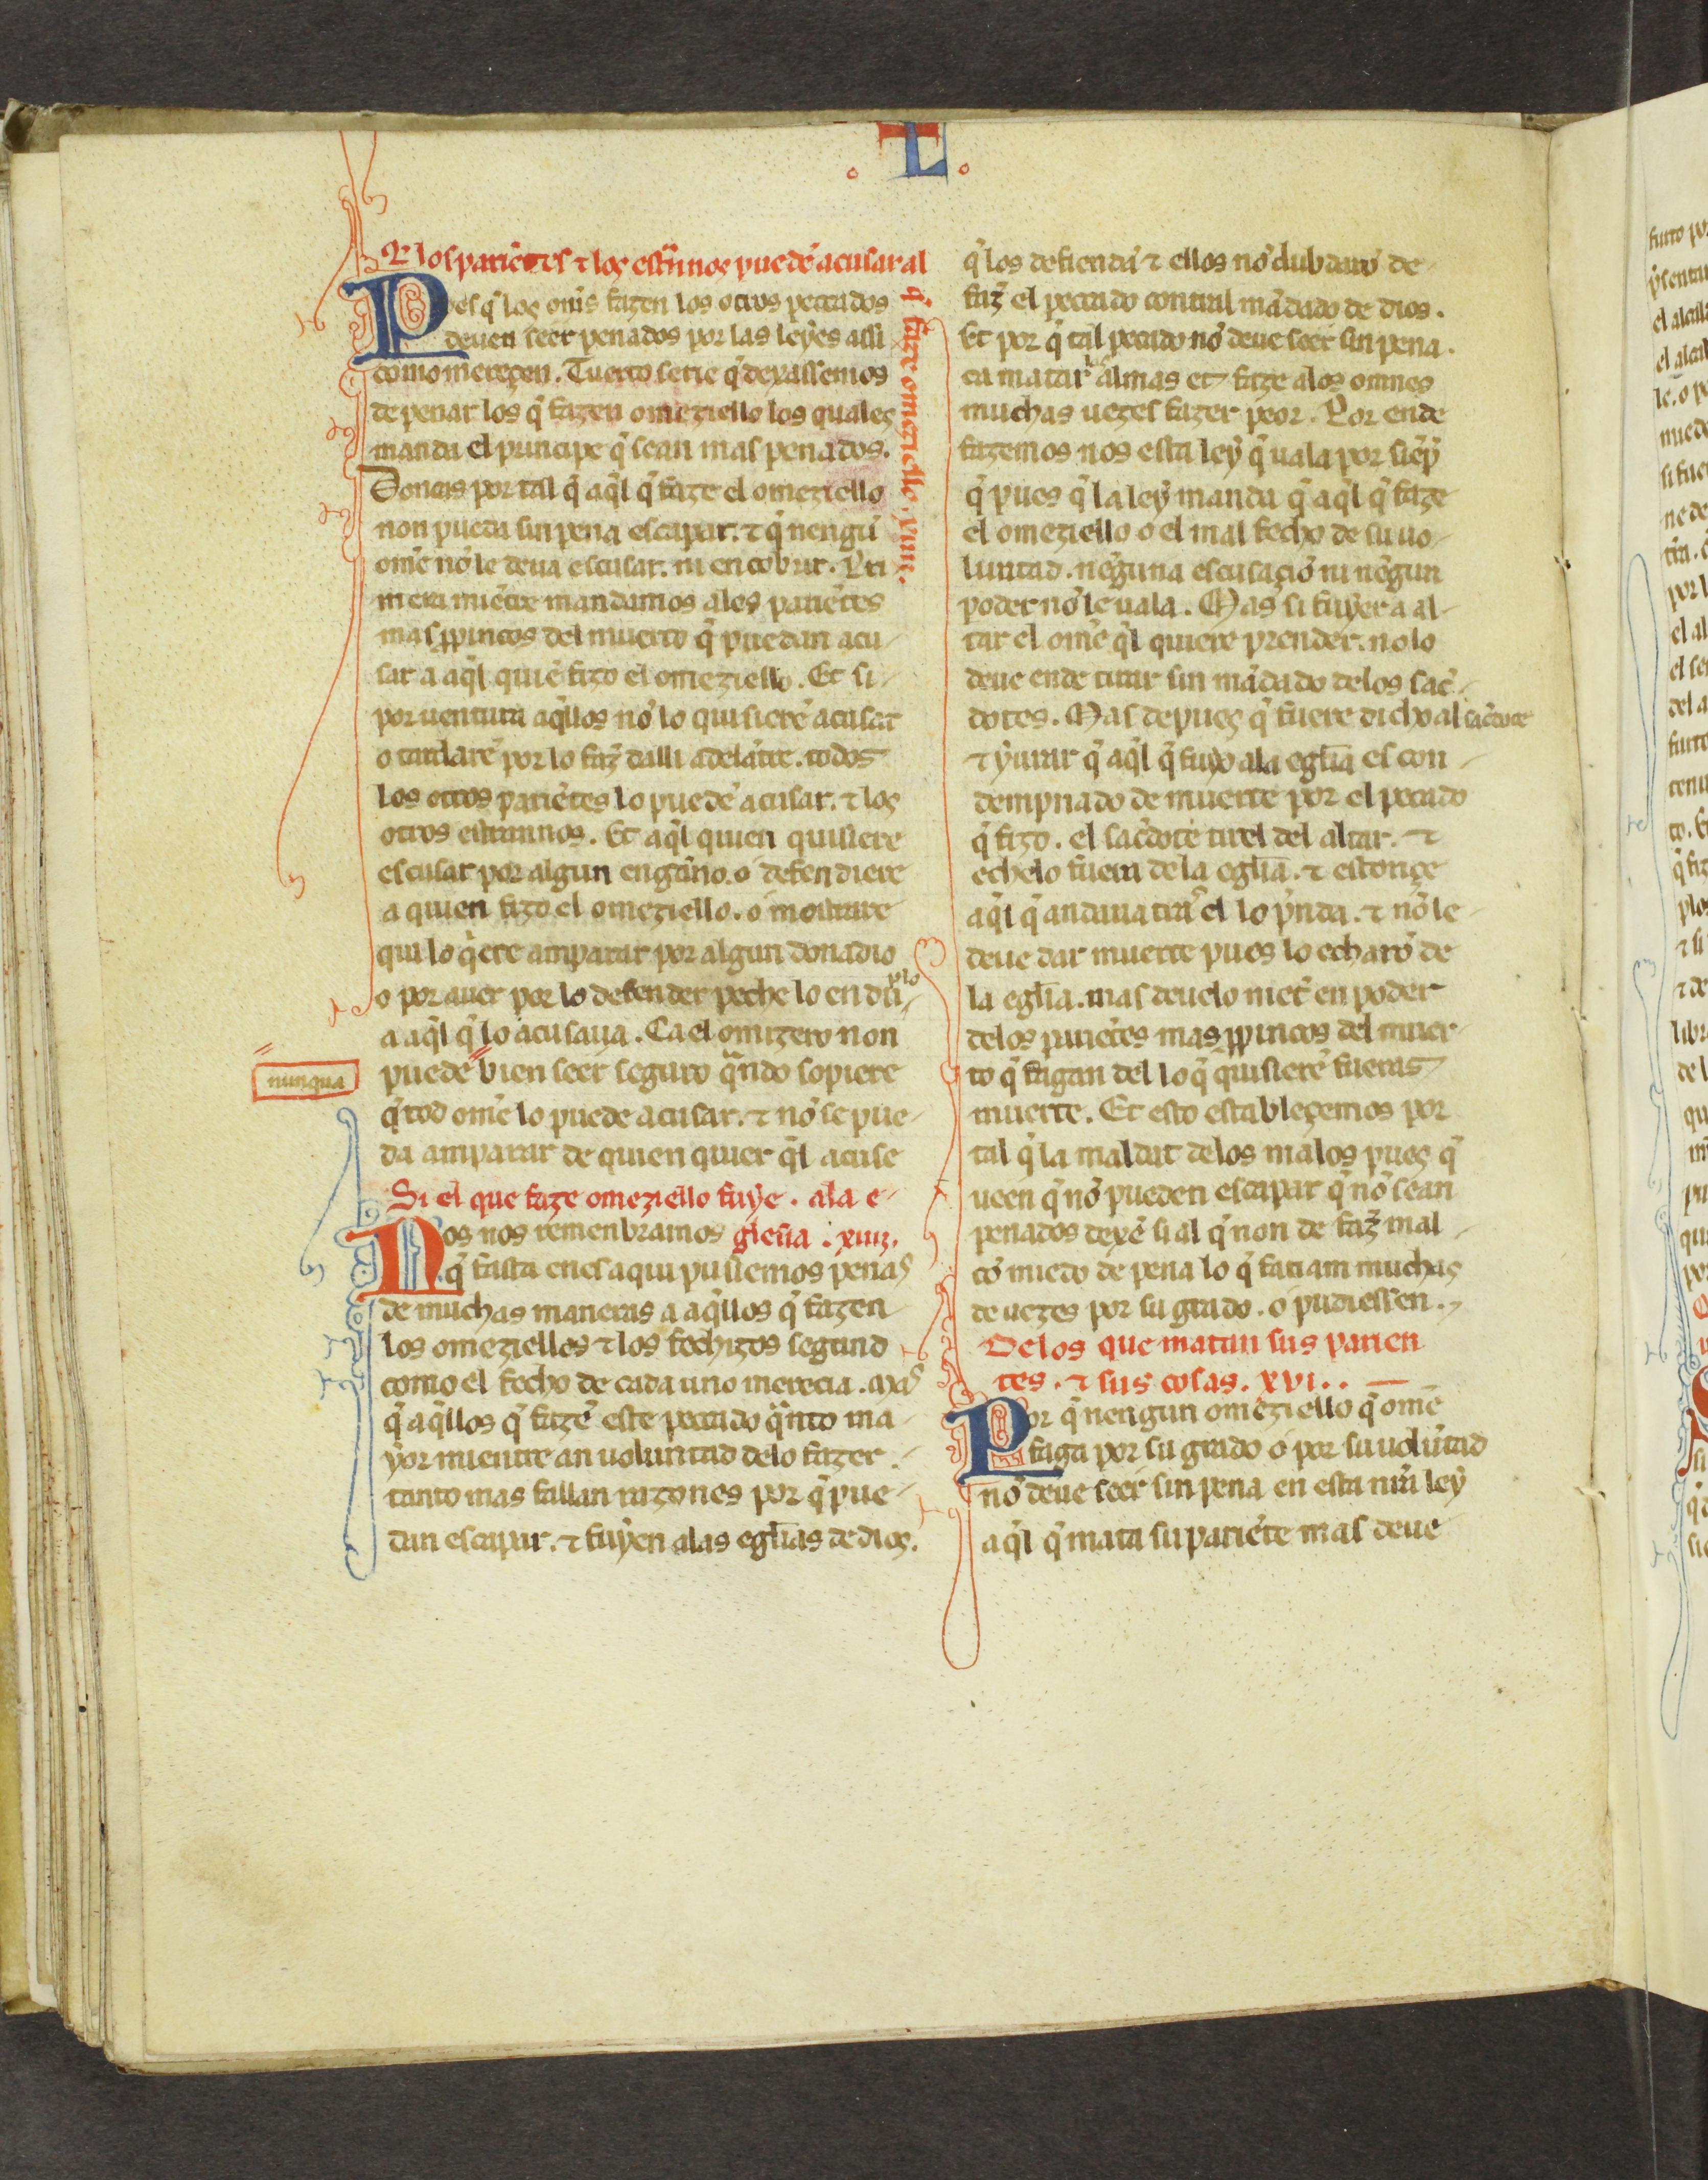 L
Q̄ los pariẽtes ⁊ los estrãnos puedẽ acusar al
q̃ faze omeziello. xiiii.
Pues q̃ los om̃s fazen los otros peccados
deuen seer penados por las leyes assi
como mereçen. Tuerto serie q̃ dexassemos
de penar los q̃ fazen omeziello los quales
manda el principe q̃ sean mas penados.
Doncas por tal q̃ aq̃l q̃ faze el omeziello
non pueda sin pena escapar. ⁊ q̃ nengũ
om̃e nõ le deua escusar. ni encobrir. Pri
mera miẽtre mandamos a los pariẽtes
mas ꝓpincos del muerto q̃ puedan acu-
sar a aq̃l quiẽ fizo el omeziello. Et si-
por uentura aq̃llos nõ lo quisierẽ acusar
o tardarẽ por lo faz̃ dalli adelãtre. todos
los otros pariẽtes lo puedẽ acusar. ⁊ los
otros estrannos. Et aq̃l quien quisiere
escusar por algun engãno. o defendiere
a quien fizo el omeziello. o mostrare
qui lo q̃ere amparar por algun donadio
o por auer por lo defender peche lo en du-
plo
a aq̃l q̃ lo acusaua. Ca el omizero non
nunqua
puede bien seer seguro q̃ndo sopiere
q̃ tod om̃e lo puede acusar. ⁊ nõ se pue-
da amparar de quien quier q̃l acuse
Si el que faze omeziello fuye. a la e-
glesia. xv.
Nos nos remenbramos
q̃ fasta en es aqui pusiemos penas
de muchas maneras a aq̃llos q̃ fazen
los omeziellos ⁊ los fechizos segund
como el fecho de cada uno merecia. Mas
q̃ aq̃llos q̃ fazẽ este peccado q̃nto ma-
yor mientre an uoluntad de lo fazer.
tanto mas fallan razones por q̃ pue-
dan escapar. ⁊ fuyen a las egl̃ias de dios.
q̃ los defiendã ⁊ ellos nõ dubdarõ de-
faz̃ el peccado contral mãdado de dios.
Et por q̃ tal peccado nõ deue seer sin pena.
ca matar las almas et faze a los omnes
muchas uezes fazer peor. Por ende
fazemos nos esta ley q̃ uala por siẽp̃
q̃ pues q̃ la ley manda q̃ aq̃l q̃ faze
el omeziello o el mal fecho de su uo-
luntad. nẽguna escusaciõ ni nẽgun
poder nõ le uala. Mas si fuyer a al-
tar el om̃e q̃l quiere prender. no lo
deue ende tirar sin mãdado de los sac̃-
dotes. Mas depues q̃ fuere dicho al sac̃dote
⁊ yurar q̃ aq̃l q̃ fuyo a la egl̃ia es con-
dempnado de muerte por el pecado
q̃ fizo. el sac̃dote tirel del altar. ⁊
echelo fuera de la egl̃ia. ⁊ estonçe
aq̃l q̃ andaua tras el lo p̃nda. ⁊ nõ le-
deue dar muerte pues lo echarõ de
la egl̃ia. mas deuelo met̃ en poder
de los pariẽtes mas ꝓpincos del muer-
to q̃ fagan del lo q̃ quisierẽ fueras
muerte. Et esto establecemos por
tal q̃ la maldat de los malos pues q̃
ueen q̃ nõ pueden escapar q̃ nõ sean
penados dexẽ si al q̃ non de faz̃ mal-
cõ miedo de pena lo q̃ fariam muchas
de uezes por su grado. o pudiessen.
De los que matan sus parien
tes. ⁊ sus cosas. xvi.
Por q̃ nengun omeziello q̃ om̃e
faga por su grado o por su uolũtad
nõ deue seer sin pena en esta nr̃a ley
aq̃l q̃ mata su pariẽte mas deue